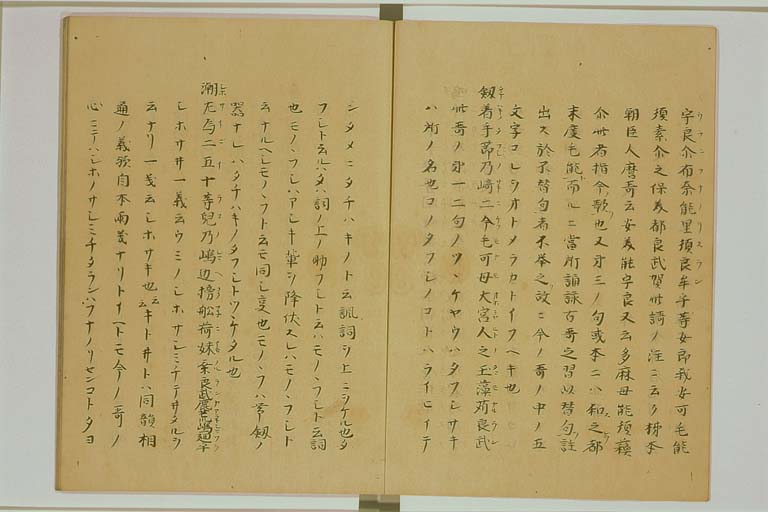 宇良尓布奈能里須良牟乎等女部我安可毛能
須素尓之保美都良武賀此謌ノ注ニ云ク柿本
朝臣人麿哥云安美能宇良又云多麻母能須蘓
尓此者指今歌也又才三ノ句或本ニハ和之都
末度毛能而ルニ當所誦詠古哥之習以替句註
出ス於不替句者不挙之故ニ今ノ哥ノ中ノ五
文字コレシオトメラカトイフヘキ也
釼著手節乃崎二今毛可母大宮人之玉藻苅良武
此哥ノ才一二句ノツヽケヤウハタフシサキ
ハ所ノ名也コノタフシノコトハライヒイテ
シタメニタチハキノト云諷詞ヲ上ニヲケル也タ
フシト云ルハタハ詞ノ上ノ助フシト云ハモノヽフシト云詞
也モノヽフシハアシキ輩ヲ降伏スレハモノヽフシト
云ナルヘシモノヽフト云モ同シ変也モノヽフハ帯釼ノ
器ナレハタチハキノタフシトツヽケタル也
潮左為二五十等兒乃嶋辺榜船荷妹乗良武鹿荒嶋廻乎
シホサヰ一義云ウミノシホサシミチテヰタルヲ
云ナリ一義云シホサキ也云キトヰトハ同韻相
通ノ義歟自本両義ナリトイヘトモ今ノ哥ノ
心ニテハシホノサシミチタランハフナノリセンコトタヨ